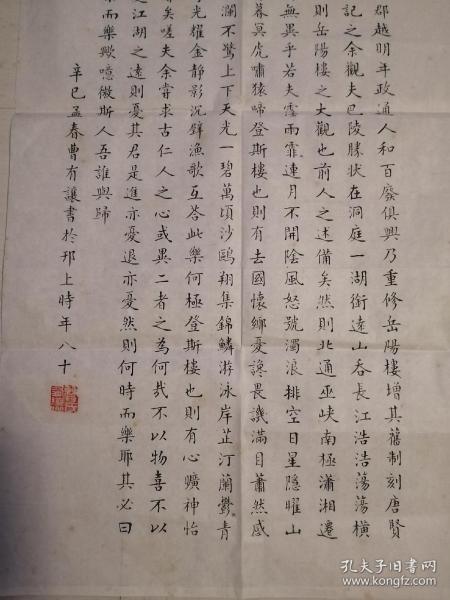 郡越明年政通人和百廢俱興乃重修岳陽樓增其舊制刻唐賢
記之余觀夫巴陵勝狀在洞庭一湖銜遠山吞長江浩浩蕩蕩橫
則岳陽樓之大觀也前人之述備矣然則北通巫峽南極瀟湘遷
無異乎若夫霪雨霏霏連月不開陰風怒號濁浪排空日星隱曜山
暮冥虎嘯猿啼登斯樓也則有去國懷鄉憂讒畏譏滿目蕭然感
瀾不驚上下天光一碧萬頃沙鷗翔集錦鱗游泳岸芷汀蘭鬱青
光耀金靜影沉璧漁歌互答此樂何極登斯樓也則有心曠神怡
矣嗟夫余嘗求古仁人之心或異二者之為何哉不以物喜不以
之江湖之遠則憂其君是進亦憂退亦憂然則何時而樂耶其必曰
而樂歟噫微斯人吾誰與歸
辛巳孟春曹有讓書於邗上時年八十
孔夫子旧书网
www.kongfz.com